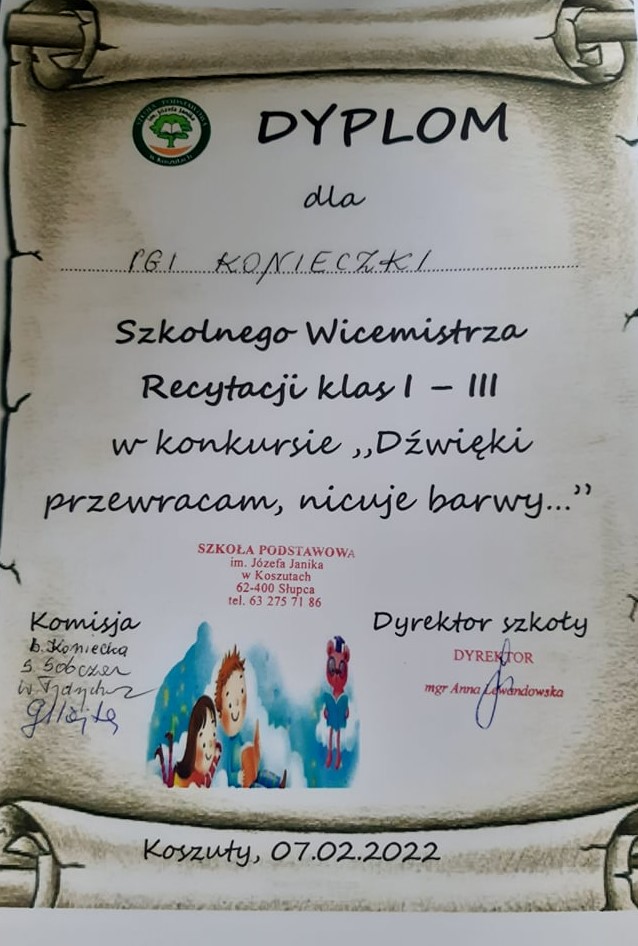 SZKOŁA PODSTAWOWA
im. Józefa Janika
w Koszutach
DYPLOM
dla
IGI KONIECZKI
Szkolnego Wicemistrza
Recytacji klas I – III
w konkursie „Dźwięki
przewracam, nicuje barwy...”
SZKOŁA PODSTAWOWA
im. Józefa Janika
w Koszutach
62-400 Słupca
tel. 63 275 71 86
Komisja
B. Koniecka
Dyrektor szkoły
DYREKTOR
mgr Anna Lewandowska
Koszuty, 07.02.2022